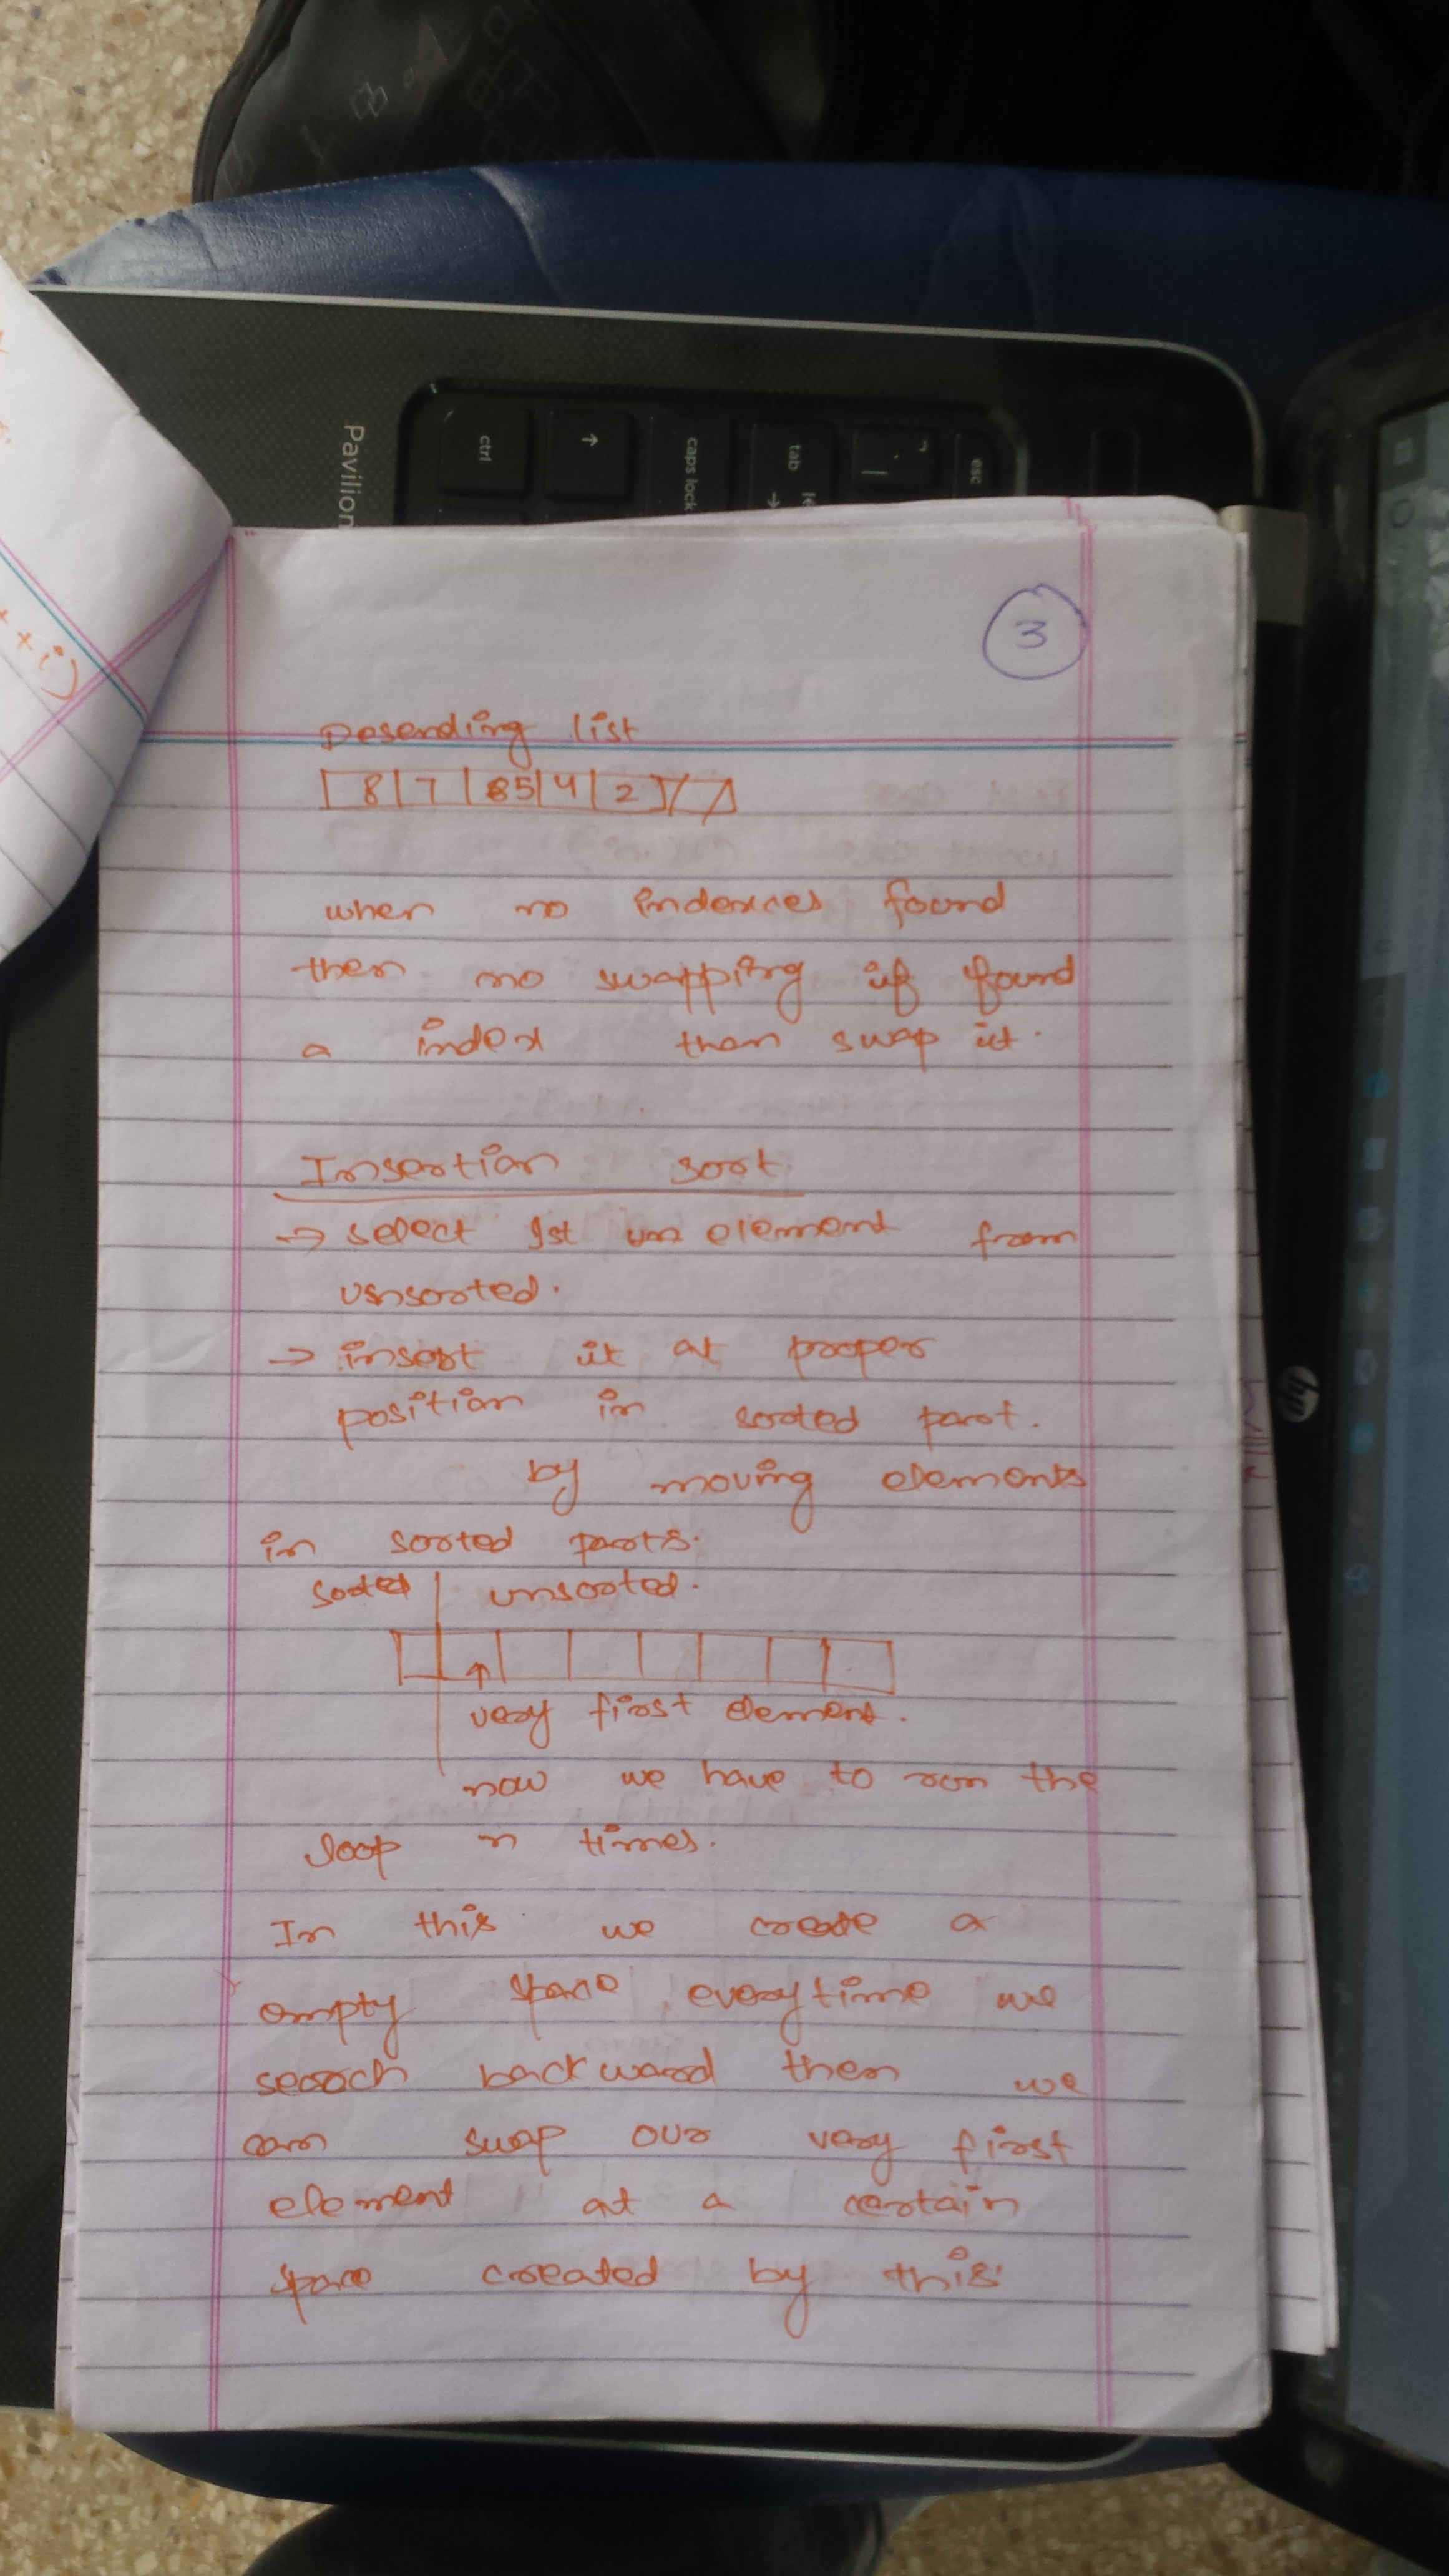 Pavilion
ctrl
caps lock
tab
esc
3
Desending list
8 7 85 4 2
when no indexces found
then no swapping if found
a index then swap it.
Insertion sort
→ select 1st un element from
unsorted.
→ insert it at proper
position in sorted part.
by moving elements
in sorted parts.
sorted unsorted.
very first element.
now we have to run the
loop n times.
In this we create a
empty space everytime we
search backward then we
can swap our very first
element at a certain
space created by this
hp